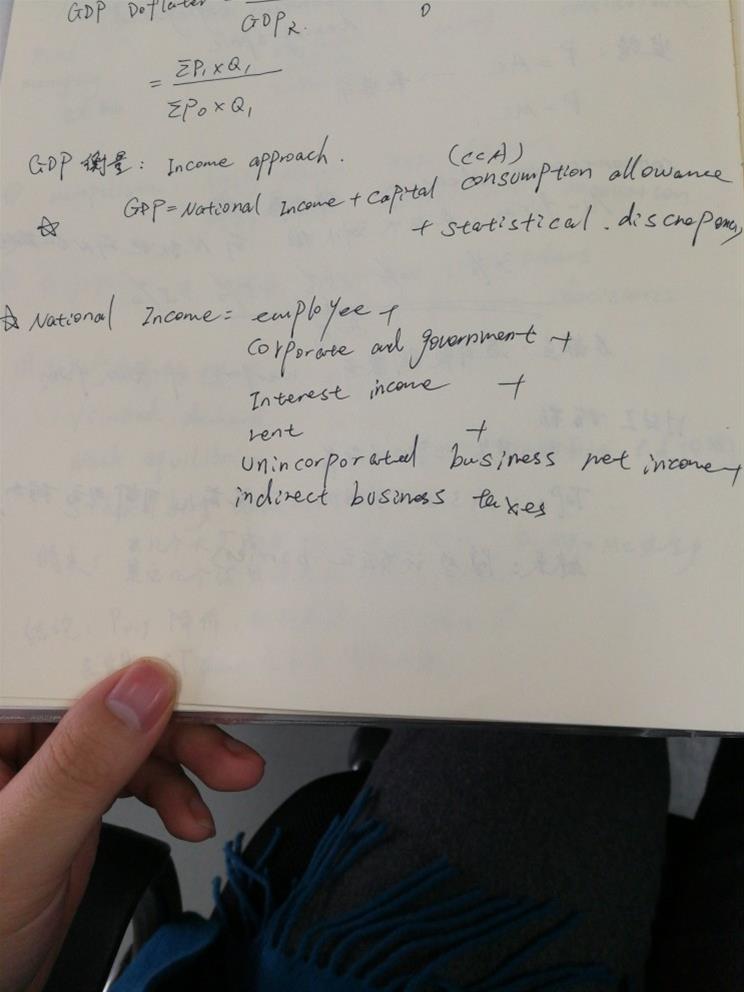 GDP Deflater =
GDP R.
= ΣP₁ × Q₁
ΣP₀ × Q₁
GDP 衡量: Income approach.
(CCA)
☆ GDP = National Income + Capital consumption allowance
+ statistical. discrepancy
☆ National Income = employee +
corporate and government +
Interest income +
rent +
unincorporated business net income +
indirect business taxes